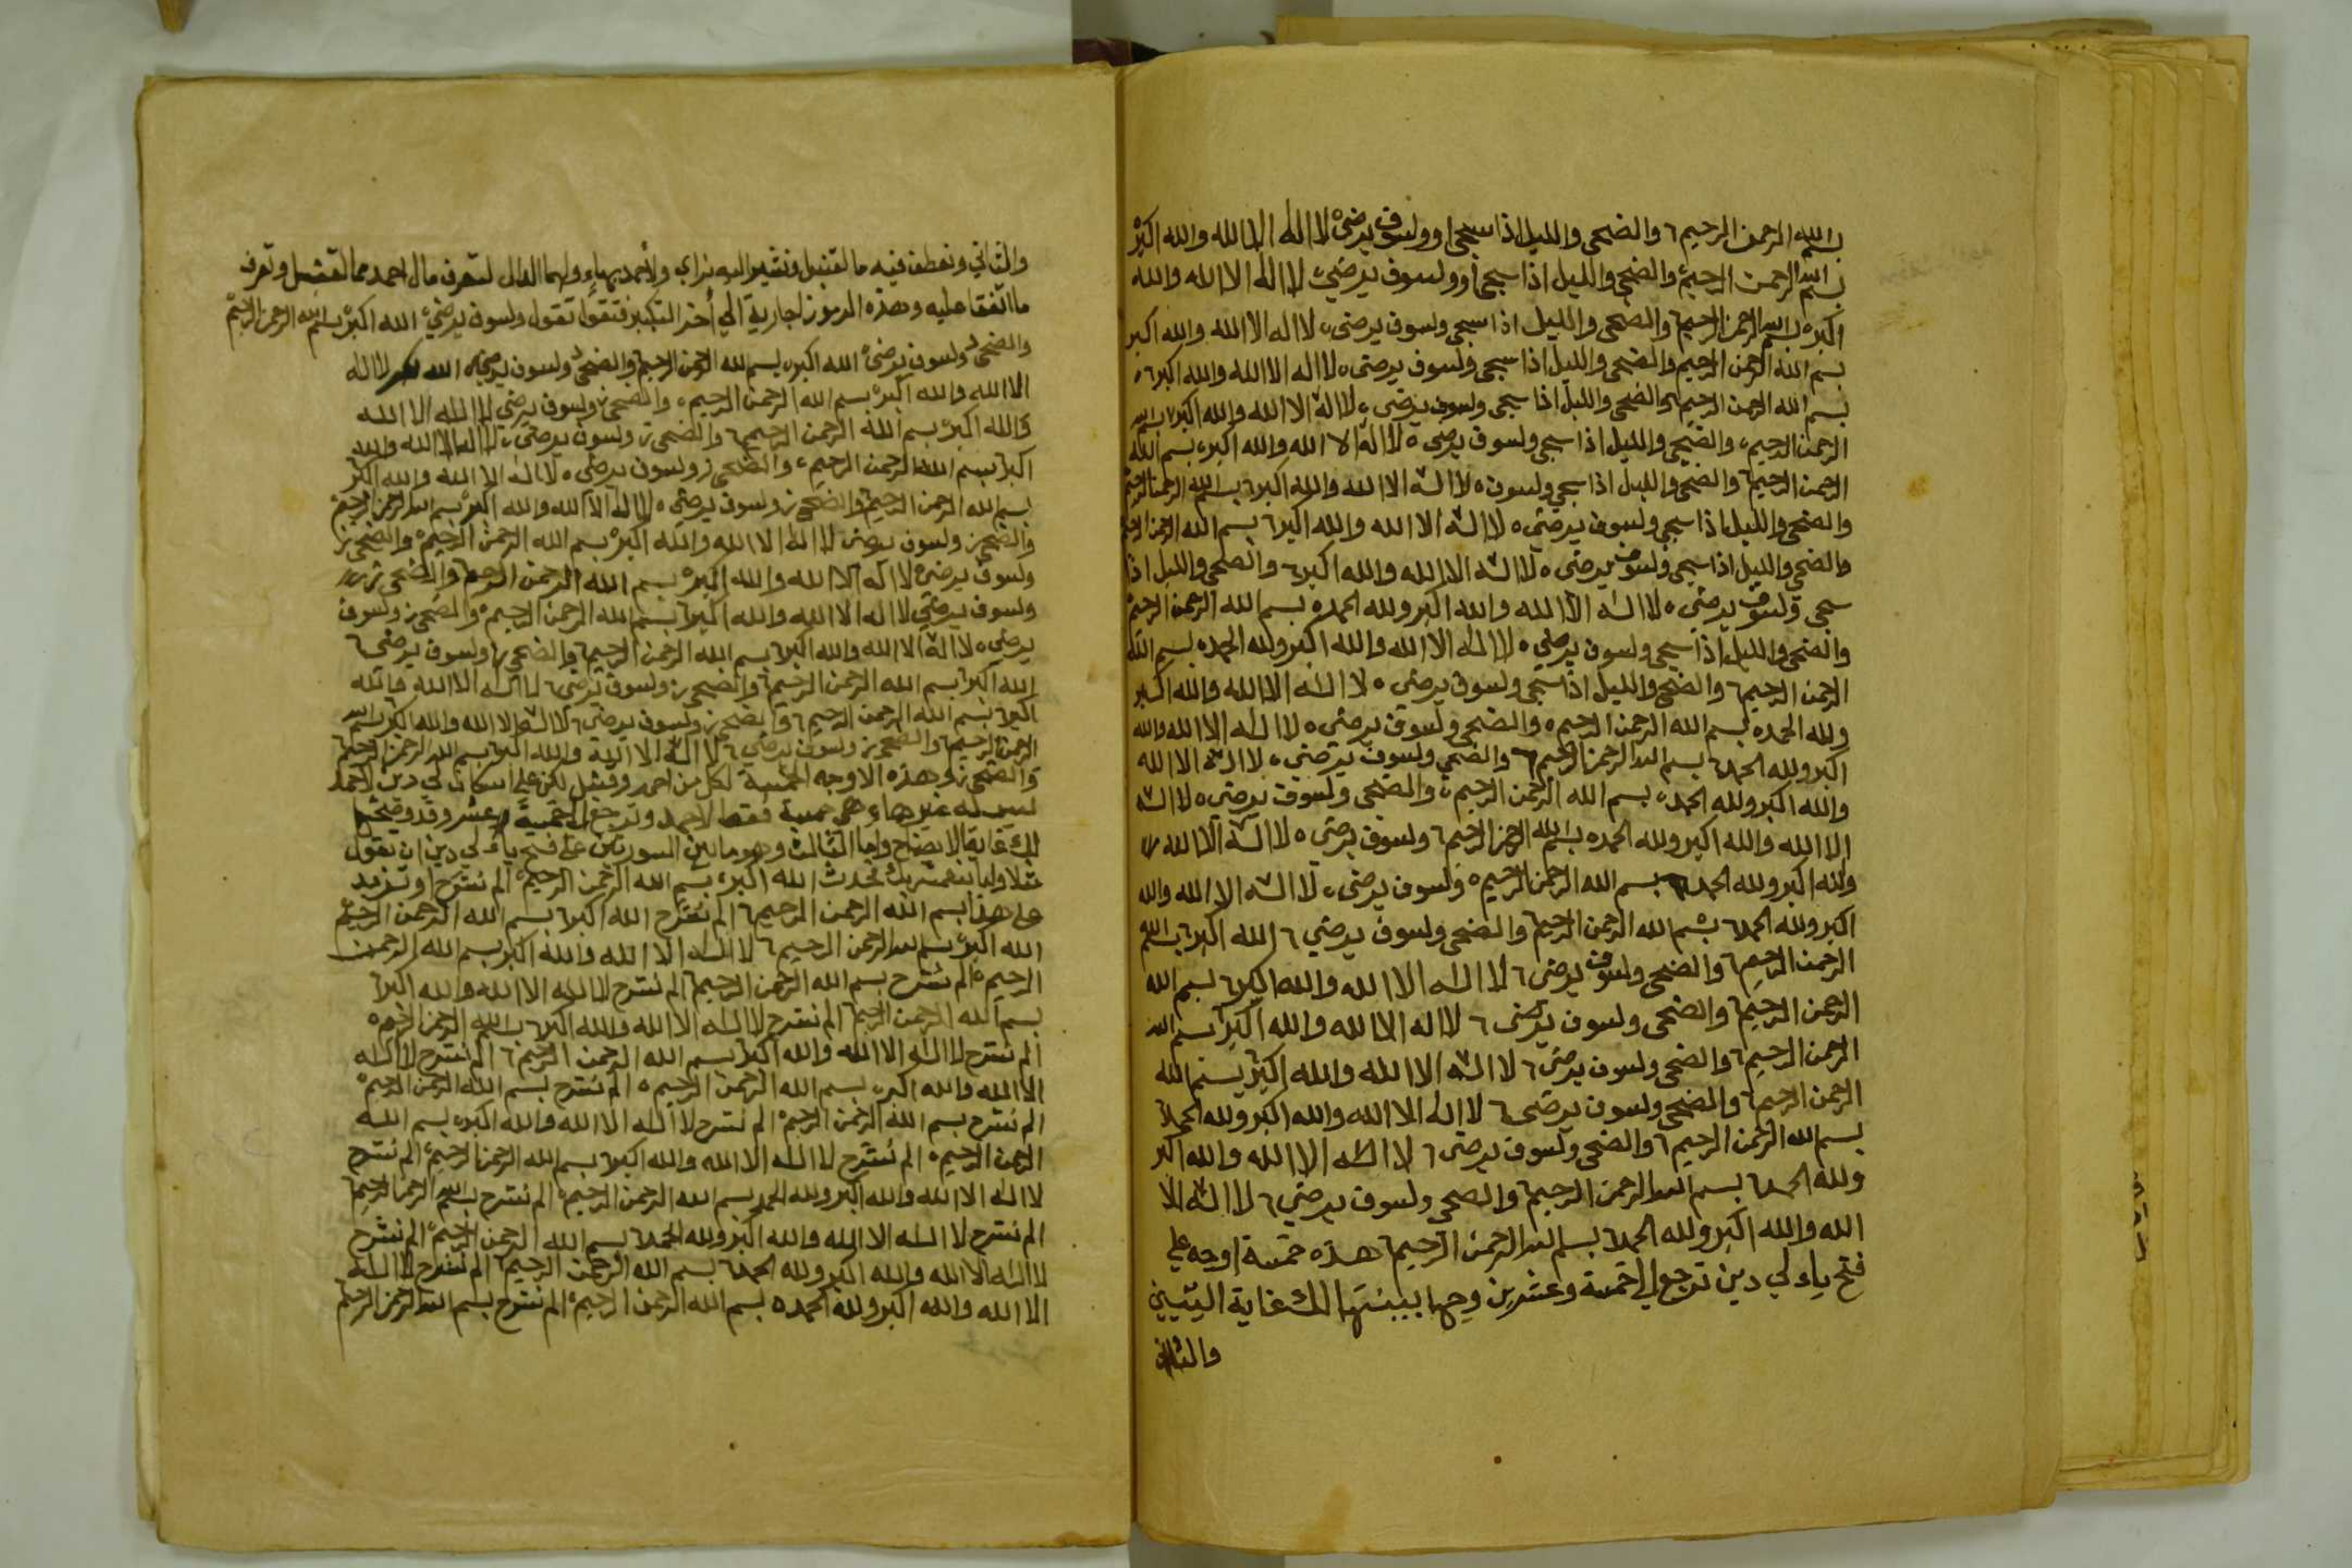 بسم الله الرحمن الرحيم ٦ والضحى والليل اذا سجى او ولسوف يرضىْ لا اله الا الله والله اكبرْ
بسم الله الرحمن الرحيمْ والضحى والليل اذا سجى او ولسوف يرضي لا اله الا الله والله
اكبره بسم الله الرحمن الرحيم والضحى والليل اذا سجى ولسوف يرضى لا اله الا الله والله اكبر
بسم الله الرحمن الرحيم والضحى والليل اذا سجى ولسوف يرضى ه لا اله الا الله والله اكبر ٦ ه
بسم الله الرحمن الرحيم والضحى والليل اذا سجى ولسوف يرضى لا اله الا الله والله اكبر بسم الله
الرحمن الرحيم والضحى والليل اذا سجى ولسوف يرضى ه لا اله الا الله والله اكبر بسم الله
الرحمن الرحيم ٦ والضحى والليل اذا سجى ولسوف ه لا اله الا الله والله اكبر ٦ بسم الله الرحمن الرحيم
والضحى والليل اذا سجى ولسوف يرضى ه لا اله الا الله والله اكبر ٦ بسم الله الرحمن الرحيم
والضحى والليل اذا سجى ولسوف يرضى ه لا اله الا الله والله اكبر ٦ والضحى والليل اذا
سجى ولسوف يرضى ه لا اله الا الله والله اكبر ولله الحمد ه بسم الله الرحمن الرحيم
والضحى والليل اذا سجى ولسوف يرضى ه لا اله الا الله والله اكبر ولله الحمد ه بسم الله
الرحمن الرحيم ٦ والضحى والليل اذا سجى ولسوف يرضى ه لا اله الا الله والله اكبر
ولله الحمد ه بسم الله الرحمن الرحيم ه والضحى ولسوف يرضى ه لا اله الا الله والله
اكبر ولله الحمد ٦ بسم الله الرحمن الرحيم ٦ والضحى ولسوف يرضى ه لا اله الا الله
والله اكبر ولله الحمد ه بسم الله الرحمن الرحيم والضحى ولسوف يرضى ه لا اله
الا الله والله اكبر ولله الحمد ه بسم الله الرحمن الرحيم ٦ ولسوف يرضى ه لا اله الا الله
والله اكبر ولله الحمد ٦ بسم الله الرحمن الرحيم ه ولسوف يرضى لا اله الا الله والله
اكبر ولله الحمد ٦ بسم الله الرحمن الرحيم والضحى ولسوف يرضى ٦ الله اكبر ٦ بسم الله
الرحمن الرحيم ٦ والضحى ولسوف يرضى ٦ لا اله الا الله والله اكبر ٦ بسم الله
الرحمن الرحيم ٦ والضحى ولسوف يرضى ٦ لا اله الا الله والله اكبر بسم الله
الرحمن الرحيم ٦ والضحى ولسوف يرضى ٦ لا اله الا الله والله اكبر بسم الله
الرحمن الرحيم ٦ والضحى ولسوف يرضى ٦ لا اله الا الله والله اكبر ولله الحمد ٦
بسم الله الرحمن الرحيم ٦ والضحى ولسوف يرضى ٦ لا اله الا الله والله اكبر
ولله الحمد ٦ بسم الله الرحمن الرحيم ٦ والضحى ولسوف يرضى ٦ لا اله الا
الله والله اكبر ولله الحمد ٦ بسم الله الرحمن الرحيم هذه خمسة اوجه على
فتح ياء لي دين ترجع الى خمسة وعشرين وجها بينتها لك غاية التبيين
والثاني
والثاني ونعطف فيه ما لقنبل ونشير اليه بزاي ولأحمد بهاء ولهما الدال لتعرف ما لاحمد مما لقنبل وتعرف
ما اتفقا عليه وهذه الرموز جارية الى أخر التكبير فتقول ولسوف يرضى الله اكبر بسم الله الرحمن الرحيم
والضحى د ولسوف يرضى الله اكبر ه بسم الله الرحمن الرحيم والضحى د ولسوف يرضى لا اله
الا الله والله اكبر بسم الله الرحمن الرحيم والضحى ولسوف يرضى لا اله الا الله
والله اكبر بسم الله الرحمن الرحيم ٦ والضحى ز ولسوف يرضى لا اله الا الله والله
اكبر بسم الله الرحمن الرحيم والضحى ز ولسوف يرضى ه لا اله الا الله والله اكبر
بسم الله الرحمن الرحيم والضحى ز ولسوف يرضى ه لا اله الا الله والله اكبر بسم الله الرحمن الرحيم
والضحى ز ولسوف يرضى لا اله الا الله والله اكبر بسم الله الرحمن الرحيم ه والضحى ز
ولسوف يرضى ه لا اله الا الله والله اكبر بسم الله الرحمن الرحيم والضحى ز
ولسوف يرضى لا اله الا الله والله اكبر ٦ بسم الله الرحمن الرحيم ه والضحى ز ولسوف
يرضى ه لا اله الا الله والله اكبر ٦ بسم الله الرحمن الرحيم ٦ والضحى ز ولسوف يرضى ٦
الله اكبر ٦ بسم الله الرحمن الرحيم ٦ والضحى ز ولسوف يرضى ٦ لا اله الا الله والله
اكبر ٦ بسم الله الرحمن الرحيم ٦ والضحى ز ولسوف يرضى ٦ لا اله الا الله والله اكبر بسم الله
الرحمن الرحيم ٦ والضحى ز ولسوف يرضى ٦ لا اله الا الله والله اكبر بسم الله الرحمن الرحيم ٦
والضحى ز وهذه الاوجه الخمسة لكل من احمد وقنبل لكن على اسكان لي دين لاحمد
ليس له غيرها وهي خمسة فقط لاحمد وترجع الى خمسة عشر وقد وضحتها
لك غاية الايضاح واما الثالث وهو ما بين السورتين على فتح ياء لي دين ان تقول
مثلا واما بنعمة ربك فحدث الله اكبر بسم الله الرحمن الرحيم الم نشرح او تزيد
على هذا بسم الله الرحمن الرحيم ٦ الم نشرح الله اكبر ٦ بسم الله الرحمن الرحيم
الله اكبر بسم الله الرحمن الرحيم ٦ لا اله الا الله والله اكبر بسم الله الرحمن
الرحيم الم نشرح بسم الله الرحمن الرحيم الم نشرح لا اله الا الله والله اكبر ٦
بسم الله الرحمن الرحيم الم نشرح لا اله الا الله والله اكبر ٦ بسم الله الرحمن الرحيم ه
الم نشرح لا اله الا الله والله اكبر بسم الله الرحمن الرحيم ٦ الم نشرح لا اله
الا الله والله اكبر بسم الله الرحمن الرحيم ه الم نشرح بسم الله الرحمن الرحيم ه
الم نشرح بسم الله الرحمن الرحيم الم نشرح لا اله الا الله والله اكبر ه بسم الله
الرحمن الرحيم الم نشرح لا اله الا الله والله اكبر ٦ بسم الله الرحمن الرحيم الم نشرح
لا اله الا الله والله اكبر ولله الحمد بسم الله الرحمن الرحيم الم نشرح بسم الله الرحمن الرحيم
الم نشرح لا اله الا الله والله اكبر ولله الحمد ٦ بسم الله الرحمن الرحيم الم نشرح
لا اله الا الله والله اكبر ولله الحمد ٦ بسم الله الرحمن الرحيم الم نشرح لا اله
الا الله والله اكبر ولله الحمد ه بسم الله الرحمن الرحيم الم نشرح بسم الله الرحمن الرحيم